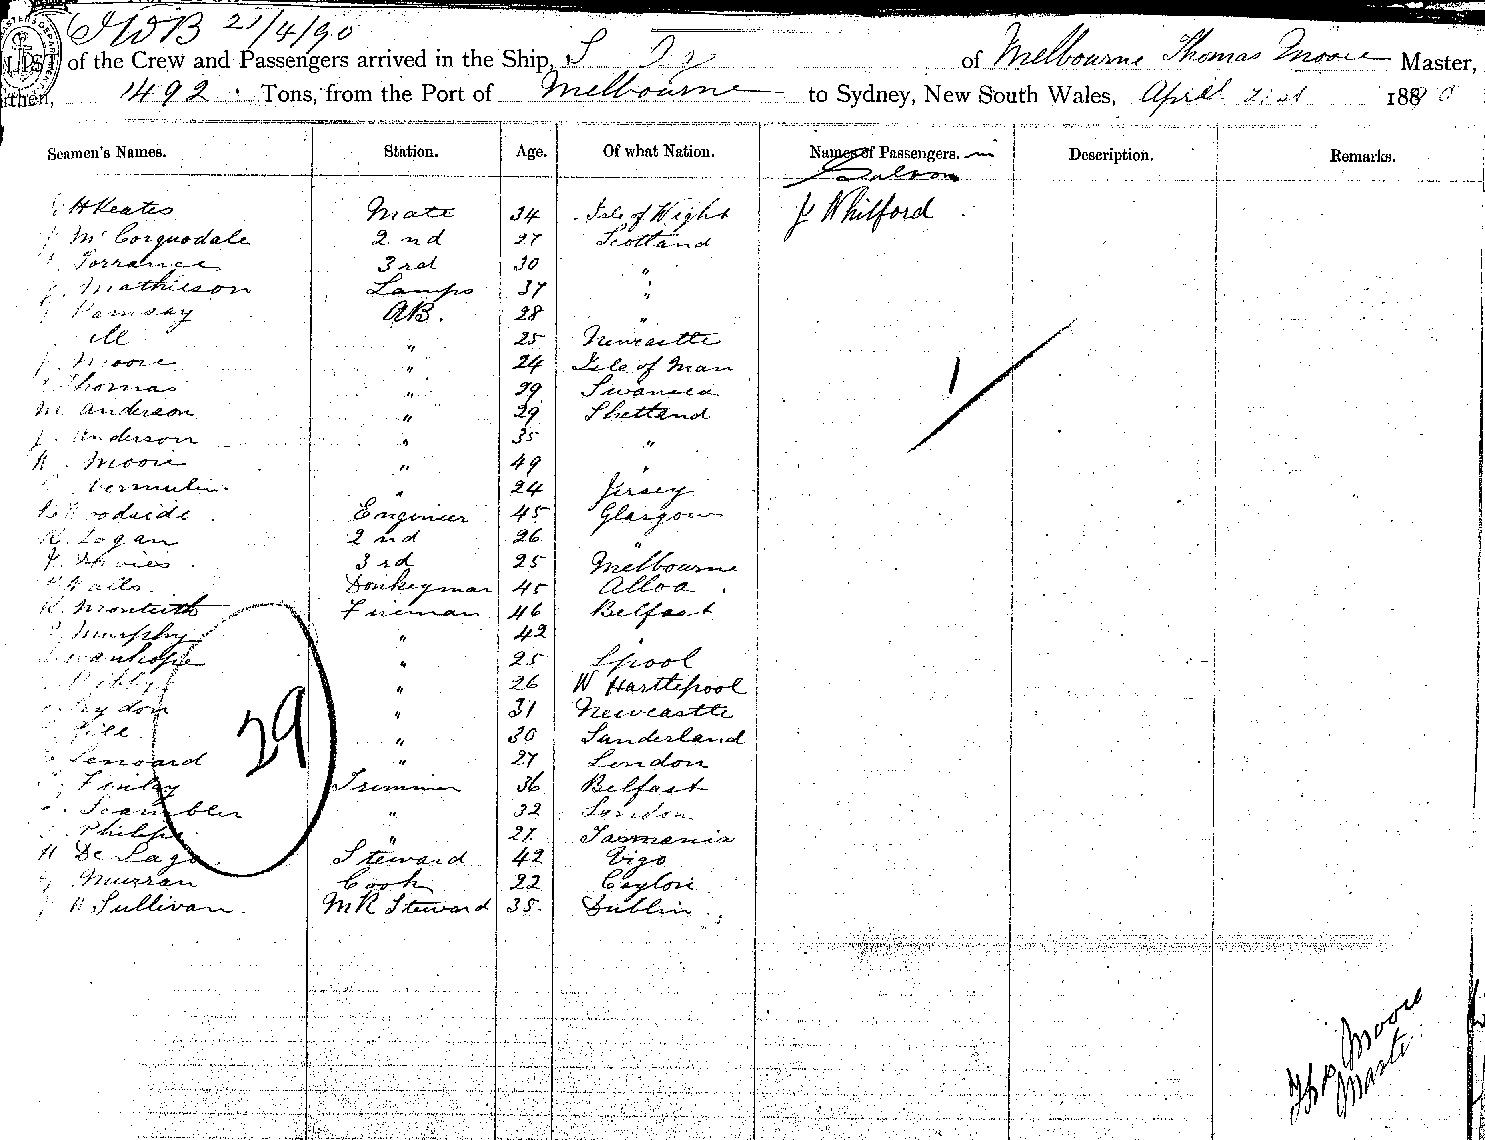 21/4/90
LIST of the Crew and Passengers arrived in the Ship, of Melbourne Thomas Moore Master,
Burthen, 1492 Tons, from the Port of Melbourne to Sydney, New South Wales, April 21st 1890
Seamen's Names. Station. Age. Of what Nation. Names of Passengers. in Description. Remarks.
Saloon
H Keates Mate 34 Isle of Wight J Whilford
J McCorquodale 2nd 27 Scotland
Torrance 3rd 30 "
Mathieson Lamps 37 "
Ramsay AB. 28 "
" 25 Newcastle
J. Moore " 24 Isle of Man
Thomas " 29 Swansea
M Anderson " 29 Shetland
J. Anderson " 35 "
Moore " 49 "
" 24 Jersey
Engineer 45 Glasgow
R. Logan 2nd 26 "
3rd 25 Melbourne
Donkeyman 45 Alloa
R. Monteith Fireman 46 Belfast
Murphy " 42 "
Wauhope " 25 Lpool
" 26 W Hartlepool
" 31 Newcastle
" 30 Sunderland
Lenoard " 27 London
29
Finlay Trimmer 36 Belfast
Scambler " 32 London
Philips " 21 Tasmania
De Lago Steward 42 Vigo
Murran Cook 22 Ceylon
Sullivan. MR Steward 35 Dublin
1
Thos Moore
Master